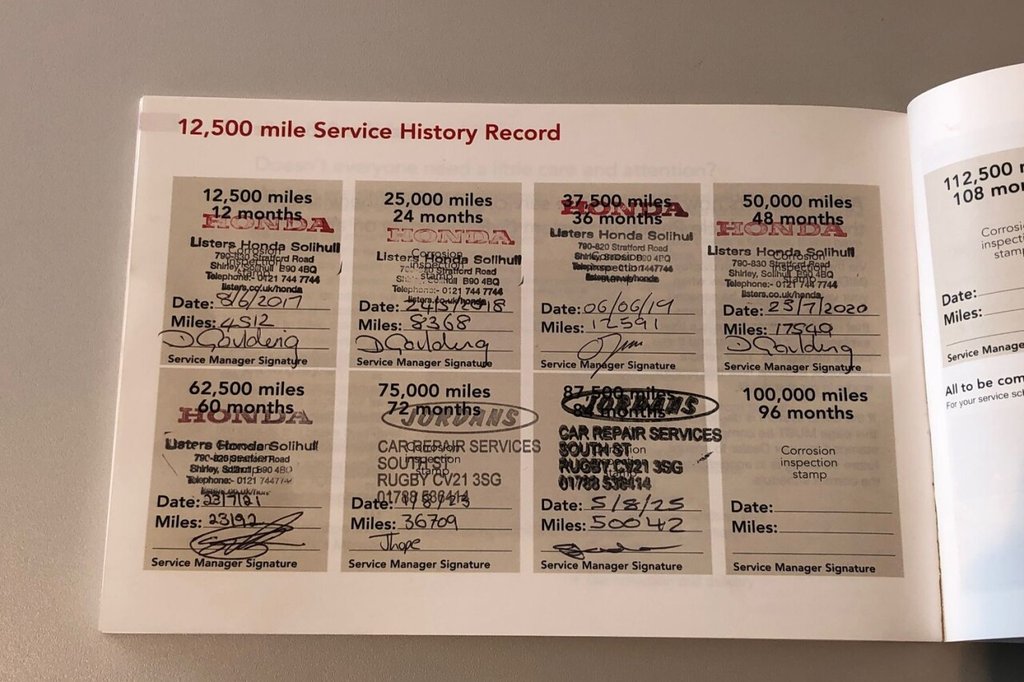 12,500 mile Service History Record
12,500 miles
12 months
HONDA
Listers Honda Solihull
790-820 Stratford Road
Shirley, Solihull B90 4BQ
Telephone:- 0121 744 7744
listers.co.uk/honda
Date: 8/6/2017
Miles: 4512
D Goulding
Service Manager Signature
25,000 miles
24 months
HONDA
Listers Honda Solihull
Stratford Road
Shirley, Solihull B90 4BQ
Telephone:- 0121 744 7744
listers.co.uk/honda
Date: 24/5/2018
Miles: 8368
D Goulding
Service Manager Signature
37,500 miles
36 months
HONDA
Listers Honda Solihull
790-820 Stratford Road
Date: 06/06/19
Miles: 12591
Service Manager Signature
50,000 miles
48 months
HONDA
Listers Honda Solihull
790-830 Stratford Road
Shirley, Solihull B90 4BQ
Telephone:- 0121 744 7744
listers.co.uk/honda
Date: 23/7/2020
Miles: 17549
D Goulding
Service Manager Signature
62,500 miles
60 months
HONDA
Listers Honda Solihull
Stratford Road
Shirley, Solihull B90 4BQ
Telephone:- 0121 744
Date: 23/7/21
Miles: 23192
Service Manager Signature
75,000 miles
72 months
JORDANS
CAR REPAIR SERVICES
SOUTH ST
RUGBY CV21 3SG
01788 536414
Date: 1/8/23
Miles: 36709
J hope
Service Manager Signature
87,500 miles
84 months
JORDANS
CAR REPAIR SERVICES
SOUTH ST
RUGBY CV21 3SG
01788 536414
Date: 5/8/25
Miles: 50042
Service Manager Signature
100,000 miles
96 months
Corrosion
inspection
stamp
Date:
Miles:
Service Manager Signature
112,500
108
Corrosi
inspect
stamp
Date:
Miles:
Service Manage
All to be com
For your service sch